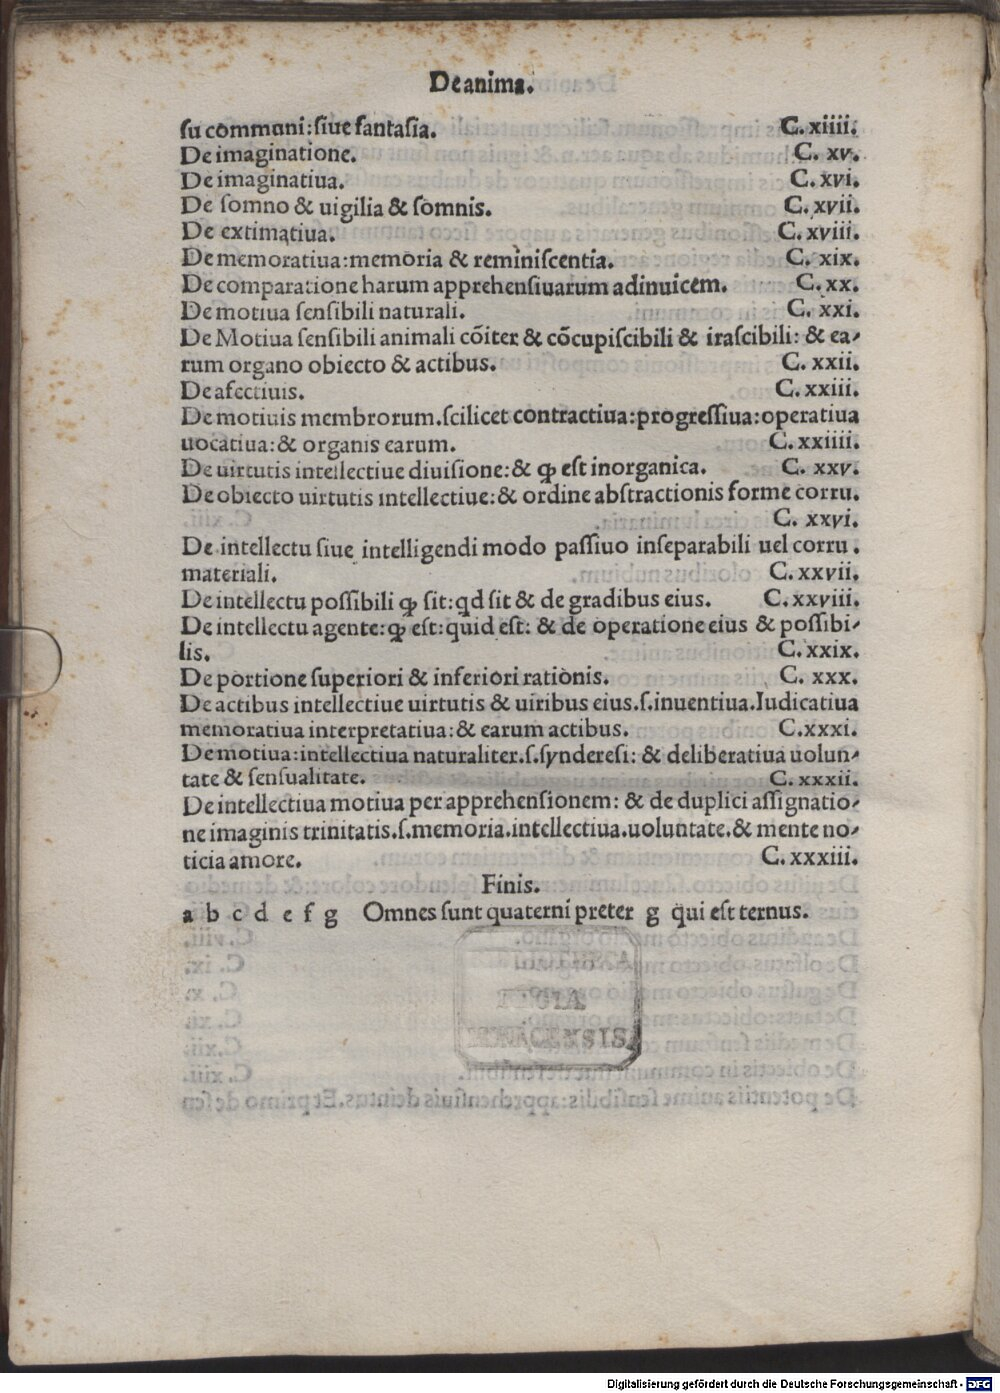 De anima.
ſu communi:ſiue fantaſia. C. xiiii.
De imaginatione. C. xv.
De imaginatiua. C. xvi.
De ſomno & uigilia & ſomnis. C. xvii.
De extimatiua. C. xviii.
De memoratiua:memoria & reminiſcentia. C. xix.
De comparatione harum apprehenſiuarum adinuicem. C. xx.
De motiua ſenſibili naturali. C. xxi.
De Motiua ſenſibili animali cõiter & cõcupiſcibili & iraſcibili: & ea-
rum organo obiecto & actibus. C. xxii.
De afectiuis. C. xxiii.
De motiuis membrorum.ſcilicet contractiua:progreſſiua:operatiua
uocatiua:& organis earum. C. xxiiii.
De uirtutis intellectiue diuiſione:& ꝙ eſt inorganica. C. xxv.
De obiecto uirtutis intellectiue:& ordine abſtractionis forme corru.
C. xxvi.
De intellectu ſiue intelligendi modo paſſiuo inſeparabili uel corru.
materiali. C. xxvii.
De intellectu poſſibili ꝙ ſit:qd ſit & de gradibus eius. C. xxviii.
De intellectu agente:ꝙ eſt:quid eſt: & de operatione eius & poſſibi-
lis. C. xxix.
De portione ſuperiori & inferiori rationis. C. xxx.
De actibus intellectiue uirtutis & uiribus eius.ſ.inuentiua.Iudicatiua
memoratiua interpretatiua:& earum actibus. C.xxxi.
De motiua:intellectiua naturaliter.ſ.ſyndereſi: & deliberatiua uolun-
tate & ſenſualitate. C. xxxii.
De intellectiua motiua per apprehenſionem: & de duplici aſſignatio-
ne imaginis trinitatis.ſ.memoria.intellectiua.uoluntate.& mente no-
ticia amore. C. xxxiii.
Finis.
a b c d e f g Omnes ſunt quaterni preter g qui eſt ternus.
BIBLIOTHECA
REGIA
MONACENSIS.
Digitalisierung gefördert durch die Deutsche Forschungsgemeinschaft - DFG